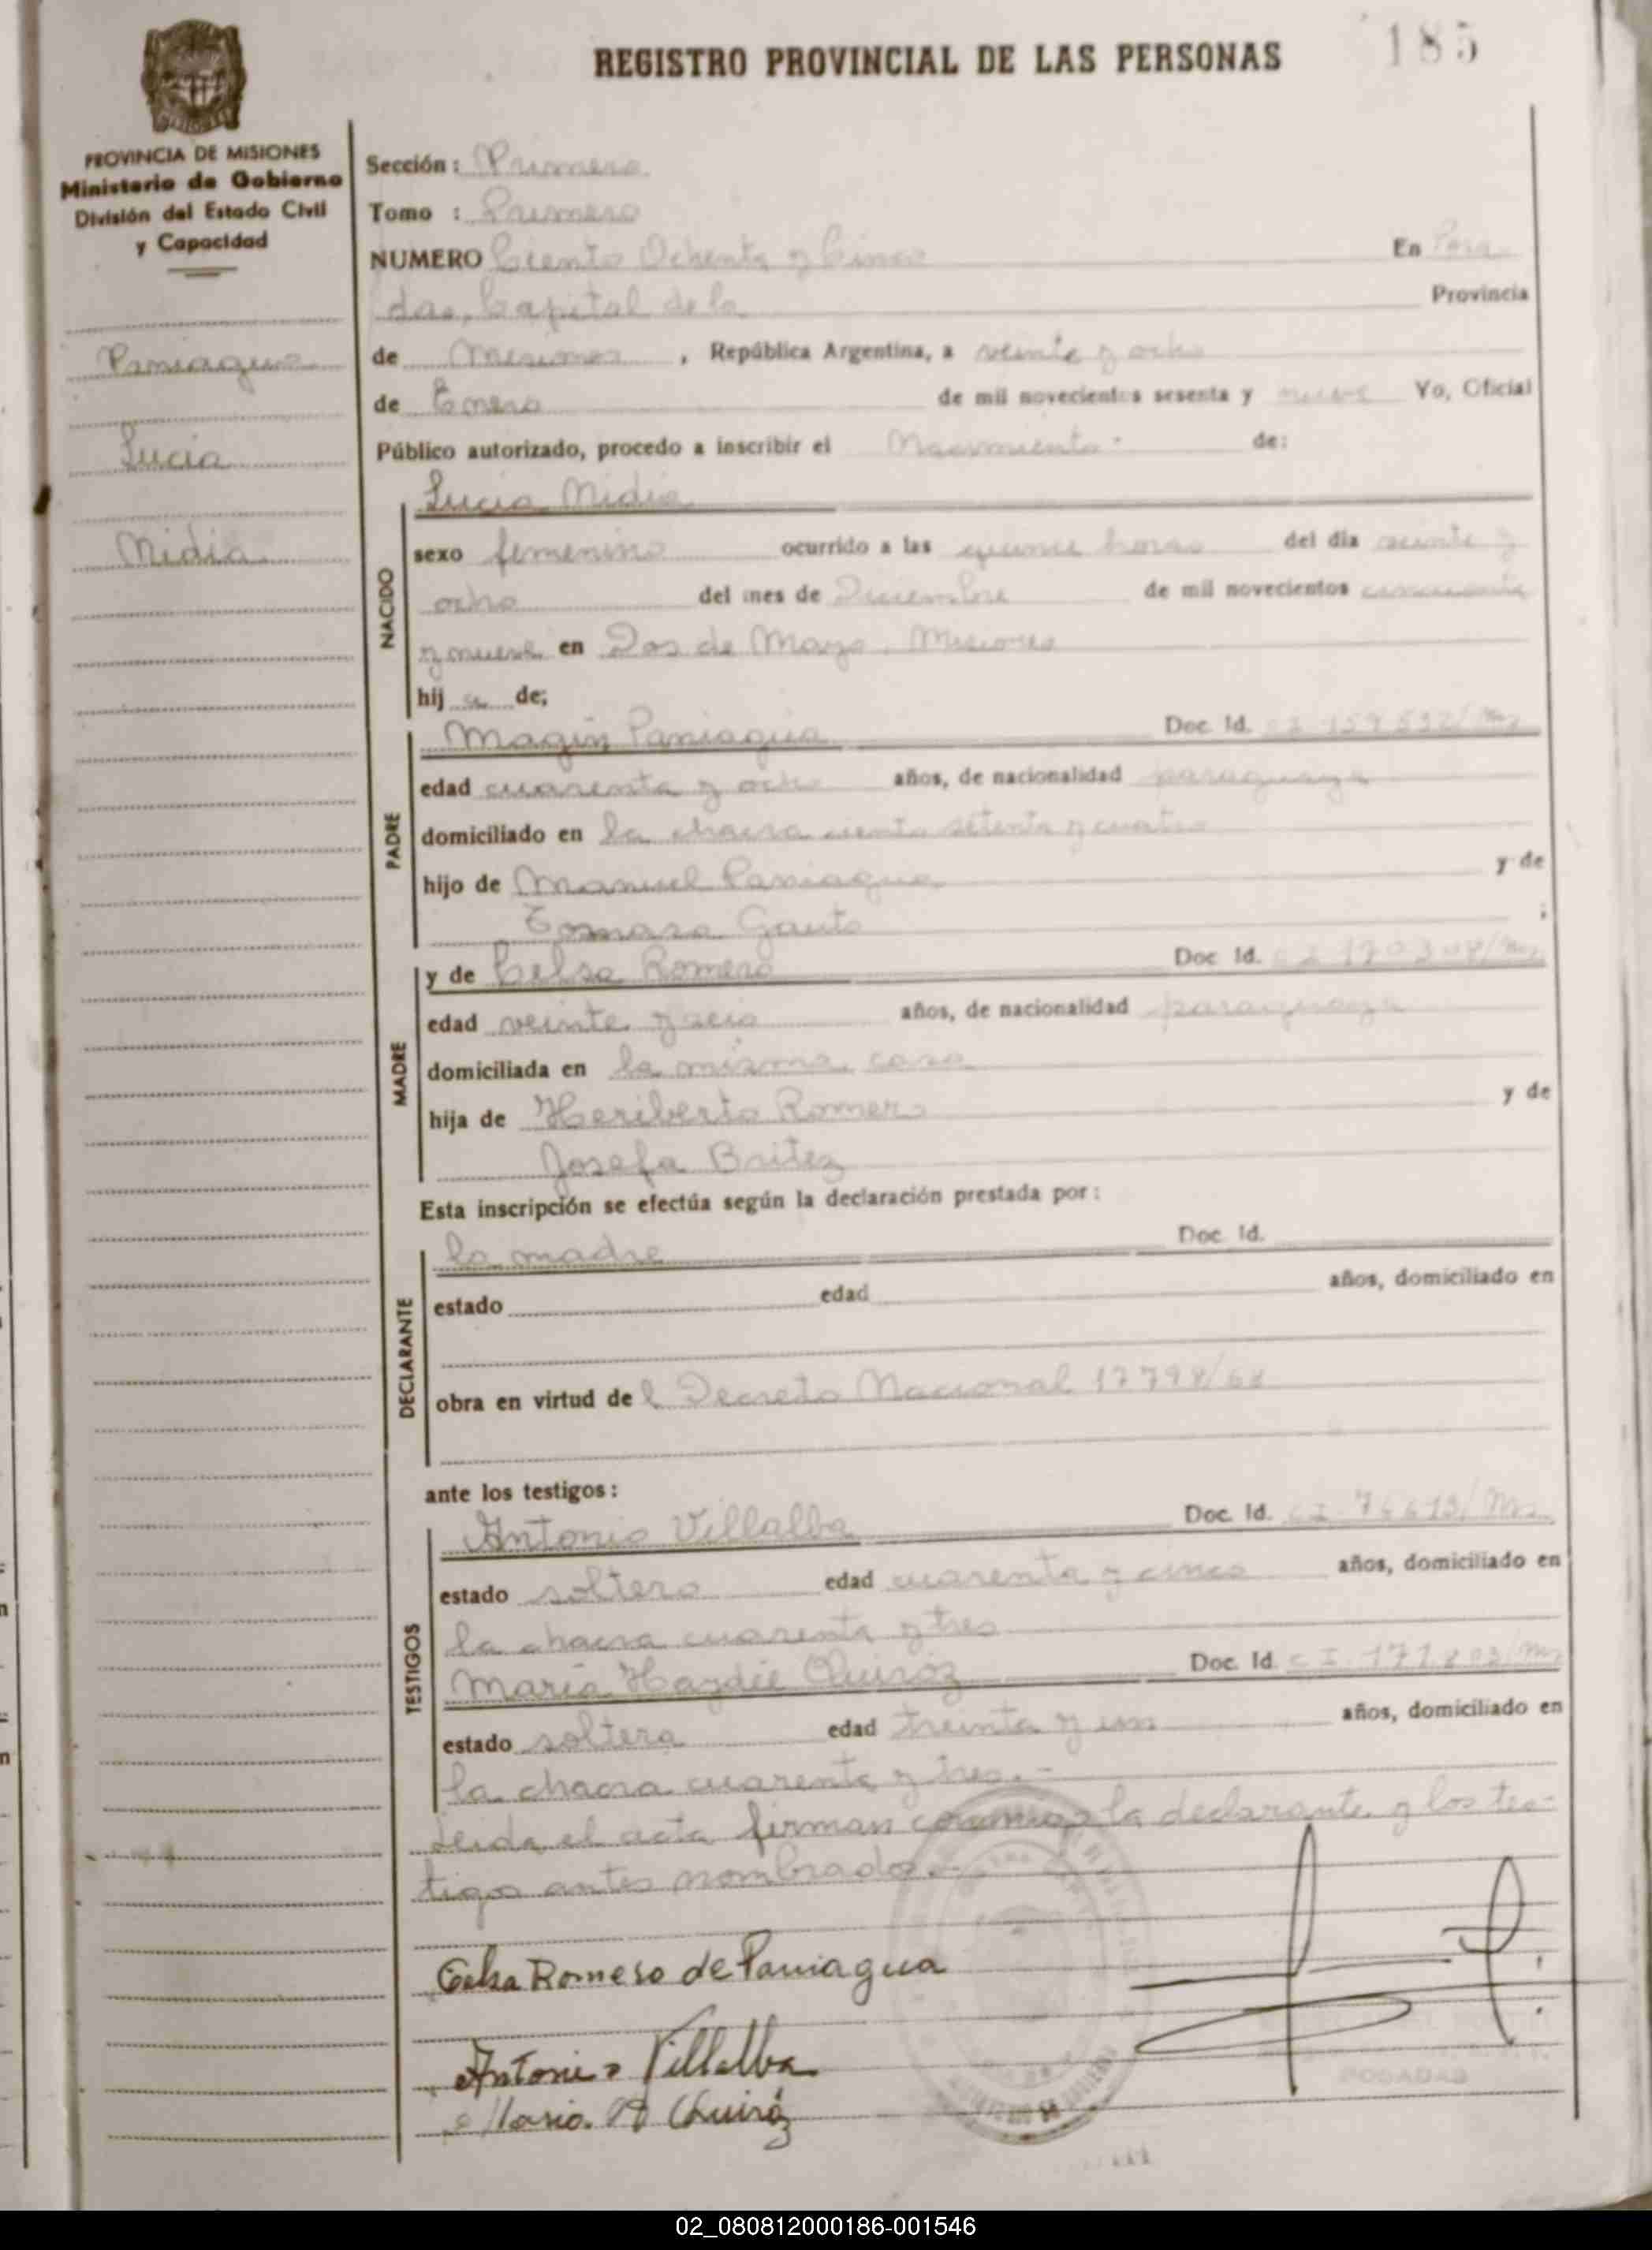 185
REGISTRO PROVINCIAL DE LAS PERSONAS
PROVINCIA DE MISIONES
Ministerio de Gobierno
División del Estado Civil
y Capacidad
Paniagua
Lucia
Nidia
Sección: Primera
Tomo : Primero
NUMERO Ciento Ochenta y Cinco En Posa
das, Capital de la Provincia
de Misiones, República Argentina, a veinte y ocho
de Enero de mil novecientos sesenta y nueve Yo, Oficial
Público autorizado, procedo a inscribir el Nacimiento de:
NACIDO
Lucia Nidia
sexo femenino ocurrido a las quince horas del dia veinte y
ocho del mes de Diciembre de mil novecientos cincuenta
y nueve en Dos de Mayo, Misiones
hij a de;
PADRE
Magin Paniagua Doc. Id.
edad cuarenta y ocho años, de nacionalidad paraguaya
domiciliado en la chacra ciento setenta y cuatro
hijo de Manuel Paniagua y de
Tomasa Gauto ;
MADRE
y de Celsa Romero Doc. Id.
edad veinte y seis años, de nacionalidad paraguaya
domiciliada en la misma casa
hija de Heriberto Romero y de
Josefa Britez
Esta inscripción se efectúa según la declaración prestada por:
DECLARANTE
la madre Doc. Id.
estado edad años, domiciliado en
obra en virtud de l Decreto Nacional 17798/68
ante los testigos:
TESTIGOS
Antonio Villalba Doc. Id.
estado soltero edad cuarenta y cinco años, domiciliado en
la chacra cuarenta y tres
Maria Haydée Quiróz Doc. Id. C I. 171.802/Mns
estado soltera edad treinta y un años, domiciliado en
la chacra cuarenta y tres.-
Leida el acta firman conmigo la declarante y los tes-
tigos antes nombrados.-
Celsa Romero de Paniagua
Antonio Villalba
Maria H Quiróz
POSADAS
02_080812000186-001546